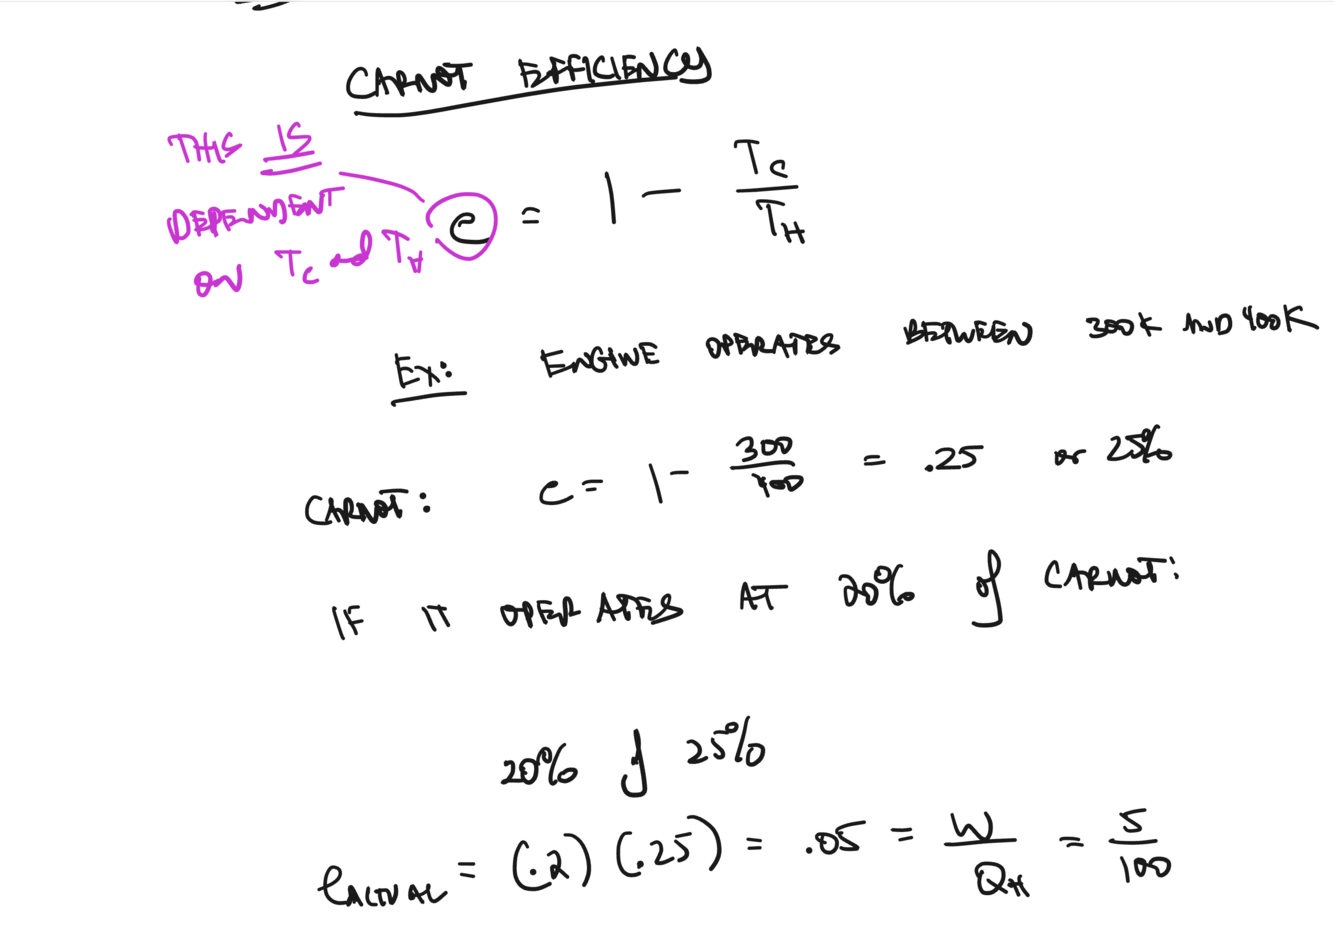 CARNOT EFFICIENCY
THIS IS
DEPENDENT
ON Tc and TH
e = 1 - Tc/TH
Ex: ENGINE OPERATES BETWEEN 300K AND 400K
CARNOT: e = 1 - 300/400 = .25 or 25%
IF IT OPERATES AT 20% of CARNOT:
20% of 25%
eACTUAL = (.2)(.25) = .05 = W/QH = 5/100